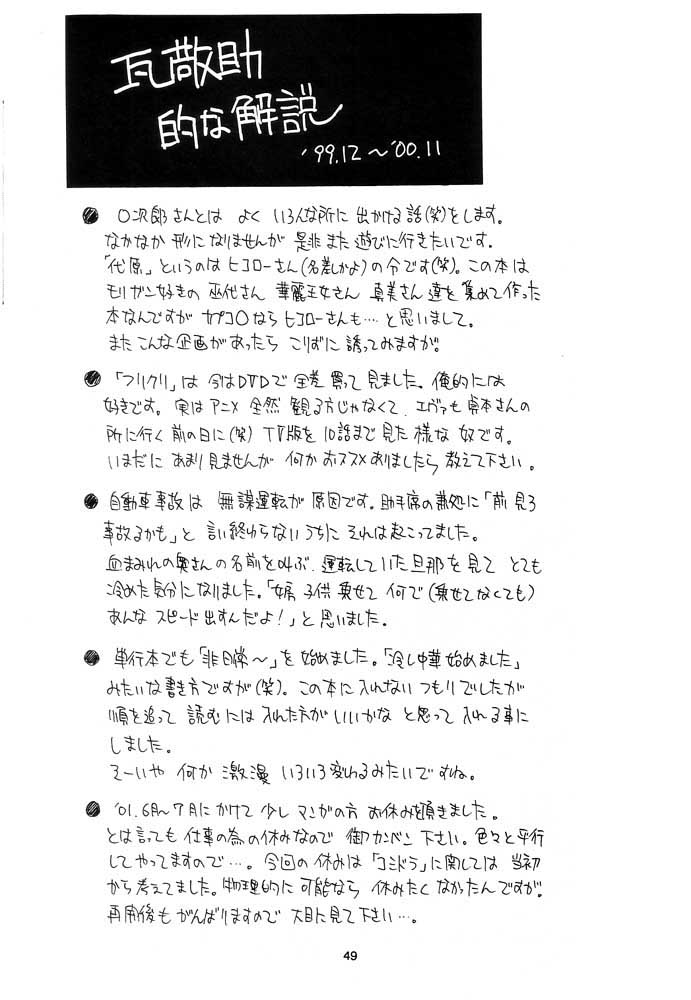 瓦敬助
的な解説
'99.12～'00.11
● ○次郎さんとは よく いろんな所に 出かける話(笑)をします。
なかなか 形になりませんが 是非 また 遊びに行きたいです。
「代原」というのは ヒコローさん(名差しかよ)の今です(笑)。この本は
モリガン好きの 巫代さん 華麗王女さん 真美さん 達を 集めて作った
本なんですが カプコ○なら ヒコローさんも…と思いまして。
また こんな 企画が あったら こりずに 誘ってみますが。
● 「フリクリ」は 今はDVDで 全差 買って 見ました。俺的には
好きです。 実は アニメ 全然 観る方じゃなくて、エヴァも 貞本さんの
所に行く 前の日に(笑) TV版を 10話まで 見た 様な 奴です。
いまだに あまり 見ませんが 何か おススメ ありましたら 教えて下さい。
● 自動車事故は 無謀運転が 原因です。助手席の 兼処に「前 見ろ
事故るかも」と 言い終わらない うちに それは 起こってました。
血まみれの奥さんの 名前を叫ぶ、運転していた 旦那を 見て とても
冷めた 気分に なりました。「婦 子供 乗せて 何で(乗せてなくても)
あんな スピード 出すんだよ！」と 思いました。
● 単行本でも「非日常～」を 始めました。「冷し中華 始めました」
みたいな 書き方ですが(笑)。この本に 入れない つもりでしたが
順を追って 読むには 入れた方が いいかな と思って 入れる事に
しました。
そーいや 何か 激漫 いろいろ 変わるみたいですね。
● '01.6月～7月にかけて 少し マンガの方 お休みを頂きました。
とは言っても 仕事の為の休みなので 御カンベン 下さい。色々と 平行
してやってますので…。今回の 休みは「コミドラ」に関しては 当初
から 考えてました。物理的に 可能なら 休みたく なかったんですが。
再開後も がんばりますので 大目に見て 下さい…。
49